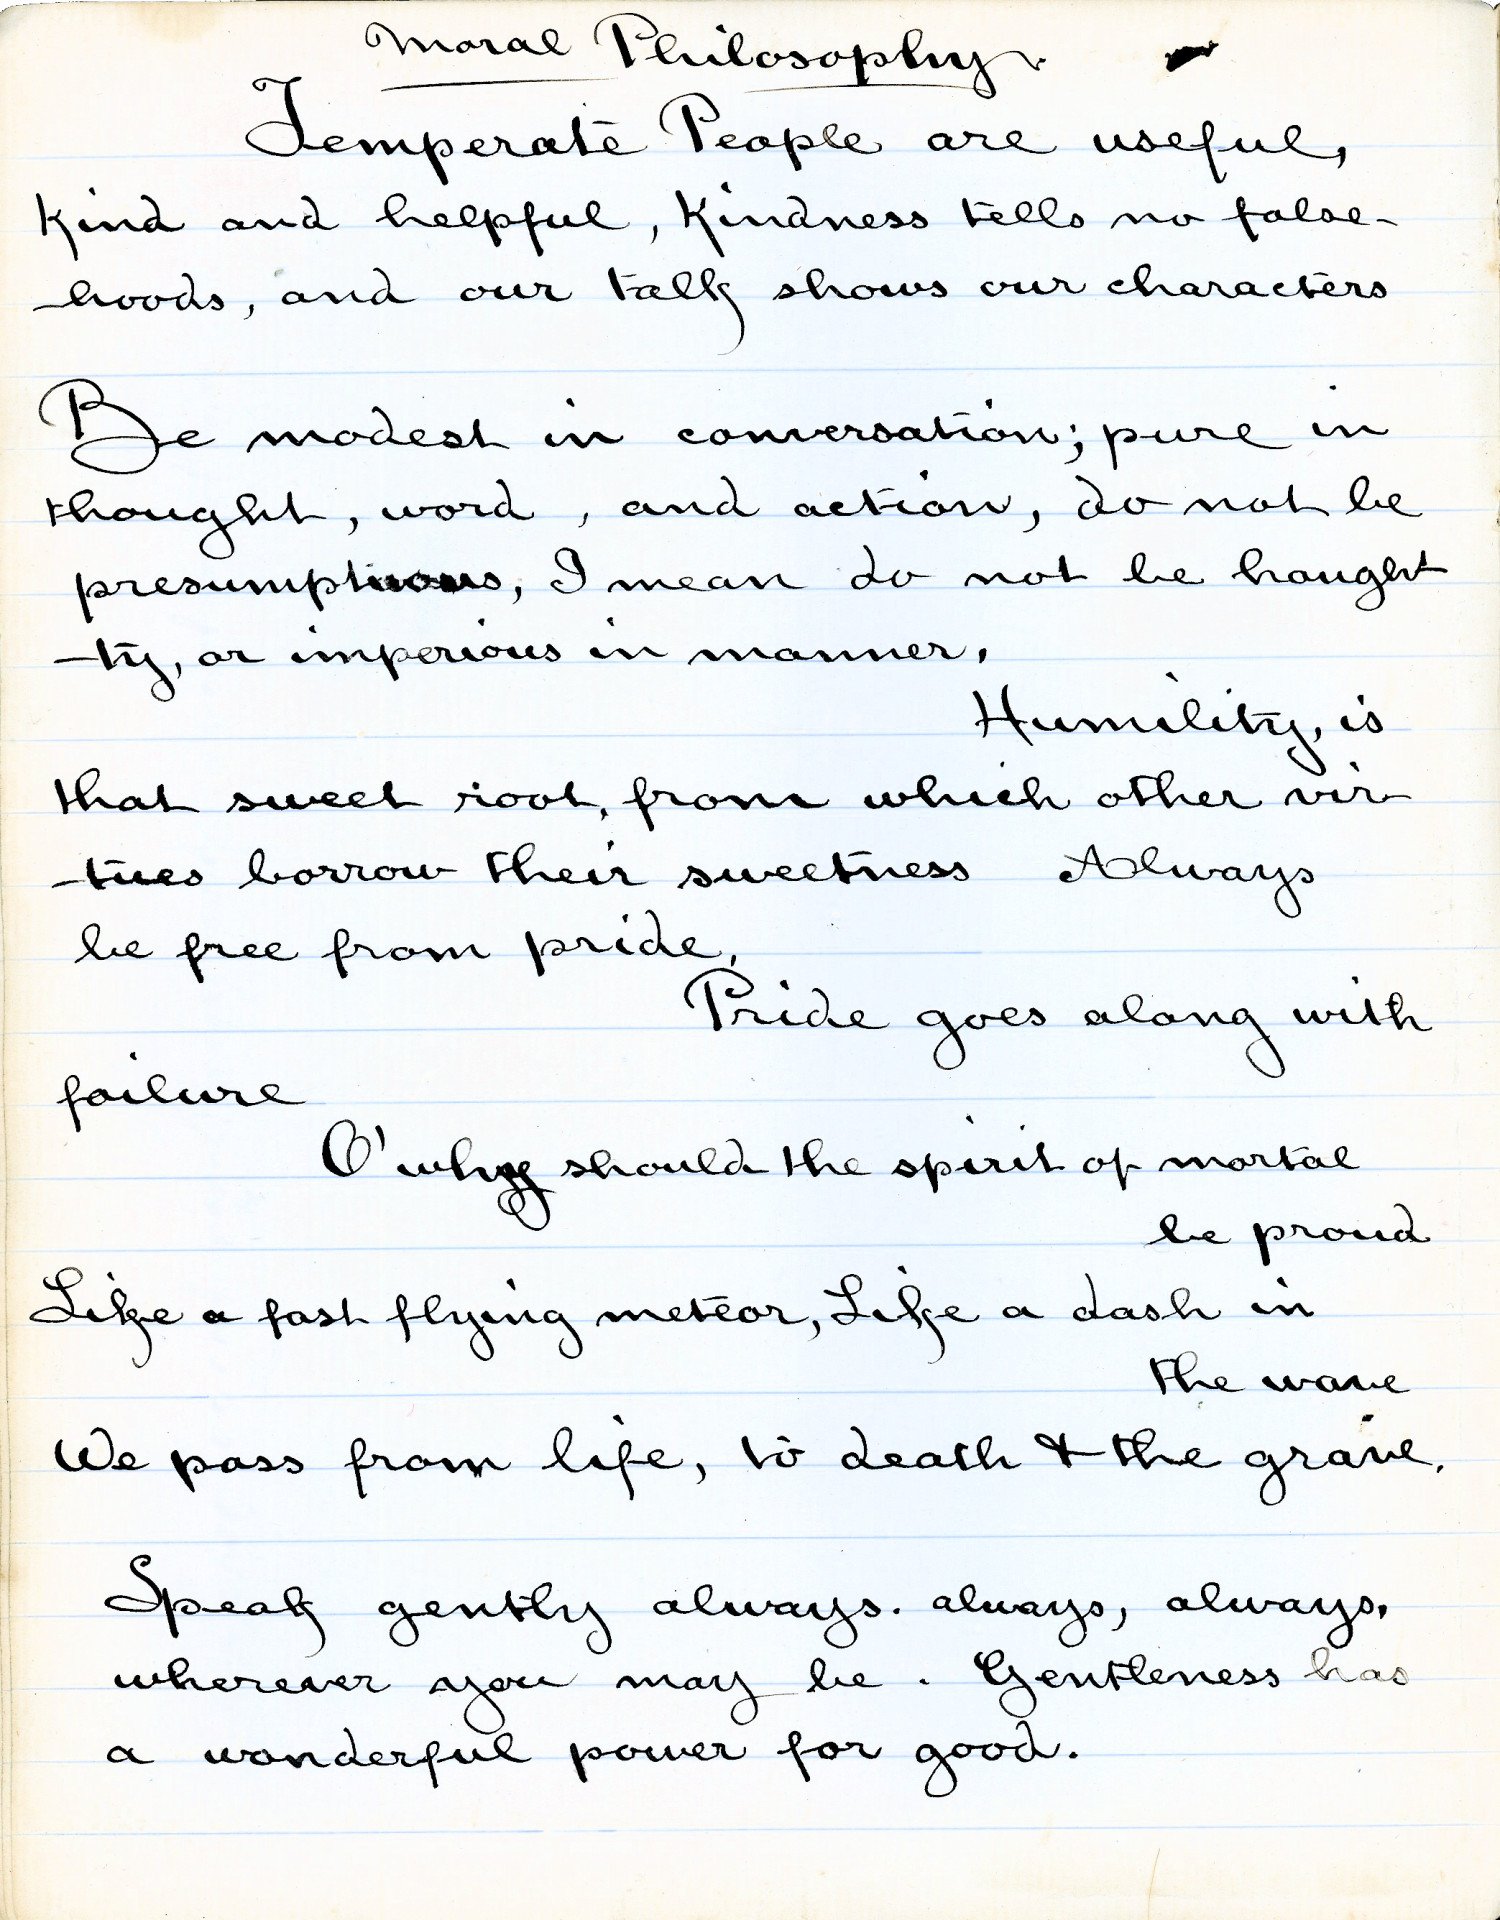 Moral Philosophy.
Temperate People are useful,
Kind and helpful, Kindness tells no false-
-hoods, and our talk shows our characters
Be modest in conversation; pure in
thought, word, and action, do not be
presumptuous, I mean do not be haught
-ty, or imperious in manner.
Humility, is
that sweet root, from which other vir-
-tues borrow their sweetness Always
be free from pride.
Pride goes along with
failure
O' why should the spirit of mortal
be proud
Like a fast flying meteor, Like a dash in
the wave
We pass from life, to death & the grave.
Speak gently always. always, always,
wherever you may be. Gentleness has
a wonderful power for good.